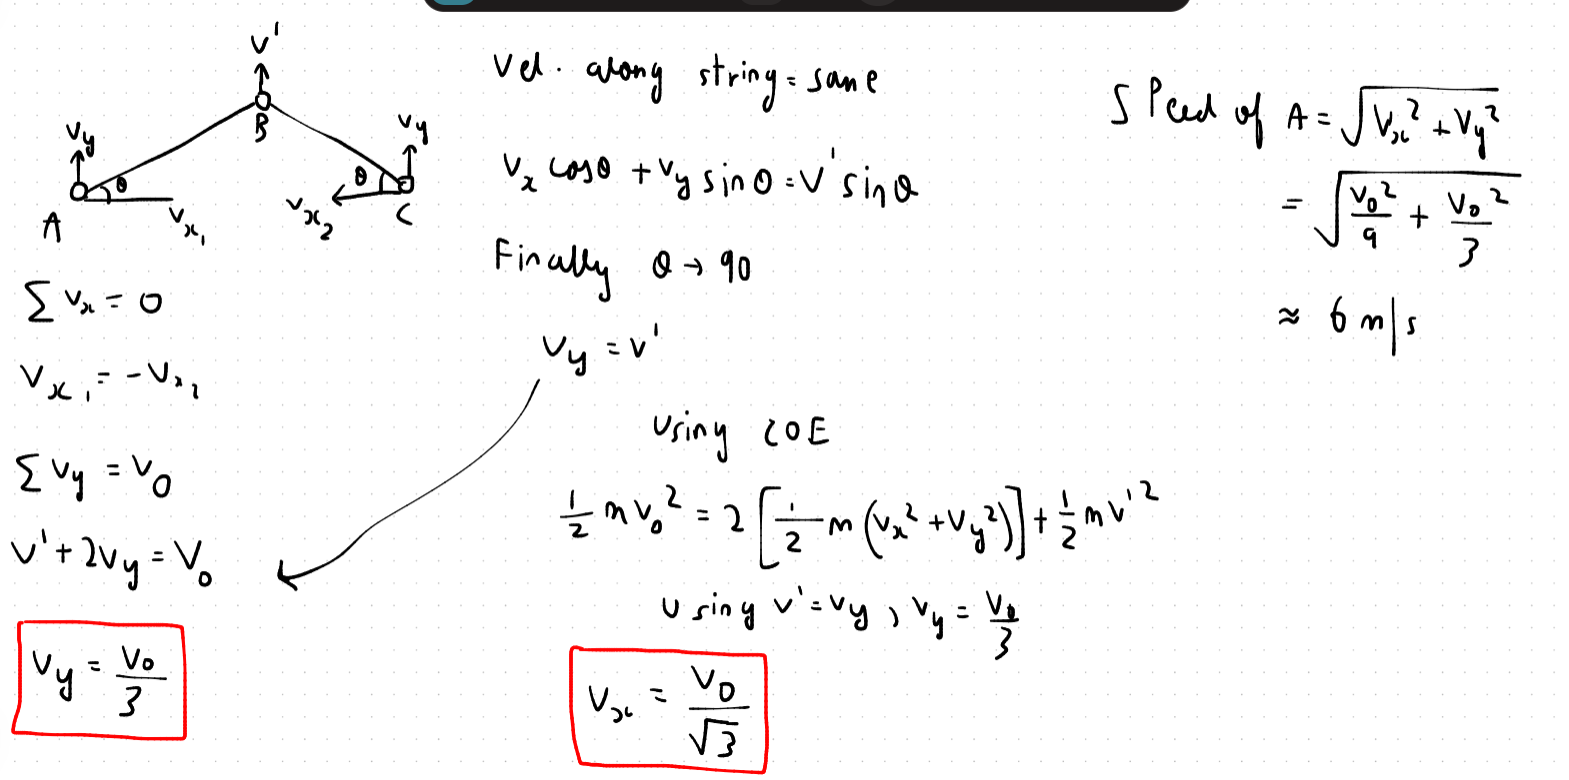 V'
B
Vy
θ
Vx₁
A
Vy
θ
Vx₂
C
Σ Vx = 0
Vx₁ = -Vx₂
Σ Vy = V₀
V' + 2Vy = V₀
Vy = V₀/3
Vel. along string = same
Vx cosθ + Vy sinθ = V' sinθ
Finally θ → 90
Vy = V'
Using COE
1/2 m V₀² = 2 [1/2 m (Vx² + Vy²)] + 1/2 m V'²
Using V' = Vy , Vy = V₀/3
Vx = V₀/√3
Speed of A = √(Vx² + Vy²)
= √(V₀²/9 + V₀²/3)
≈ 6 m/s